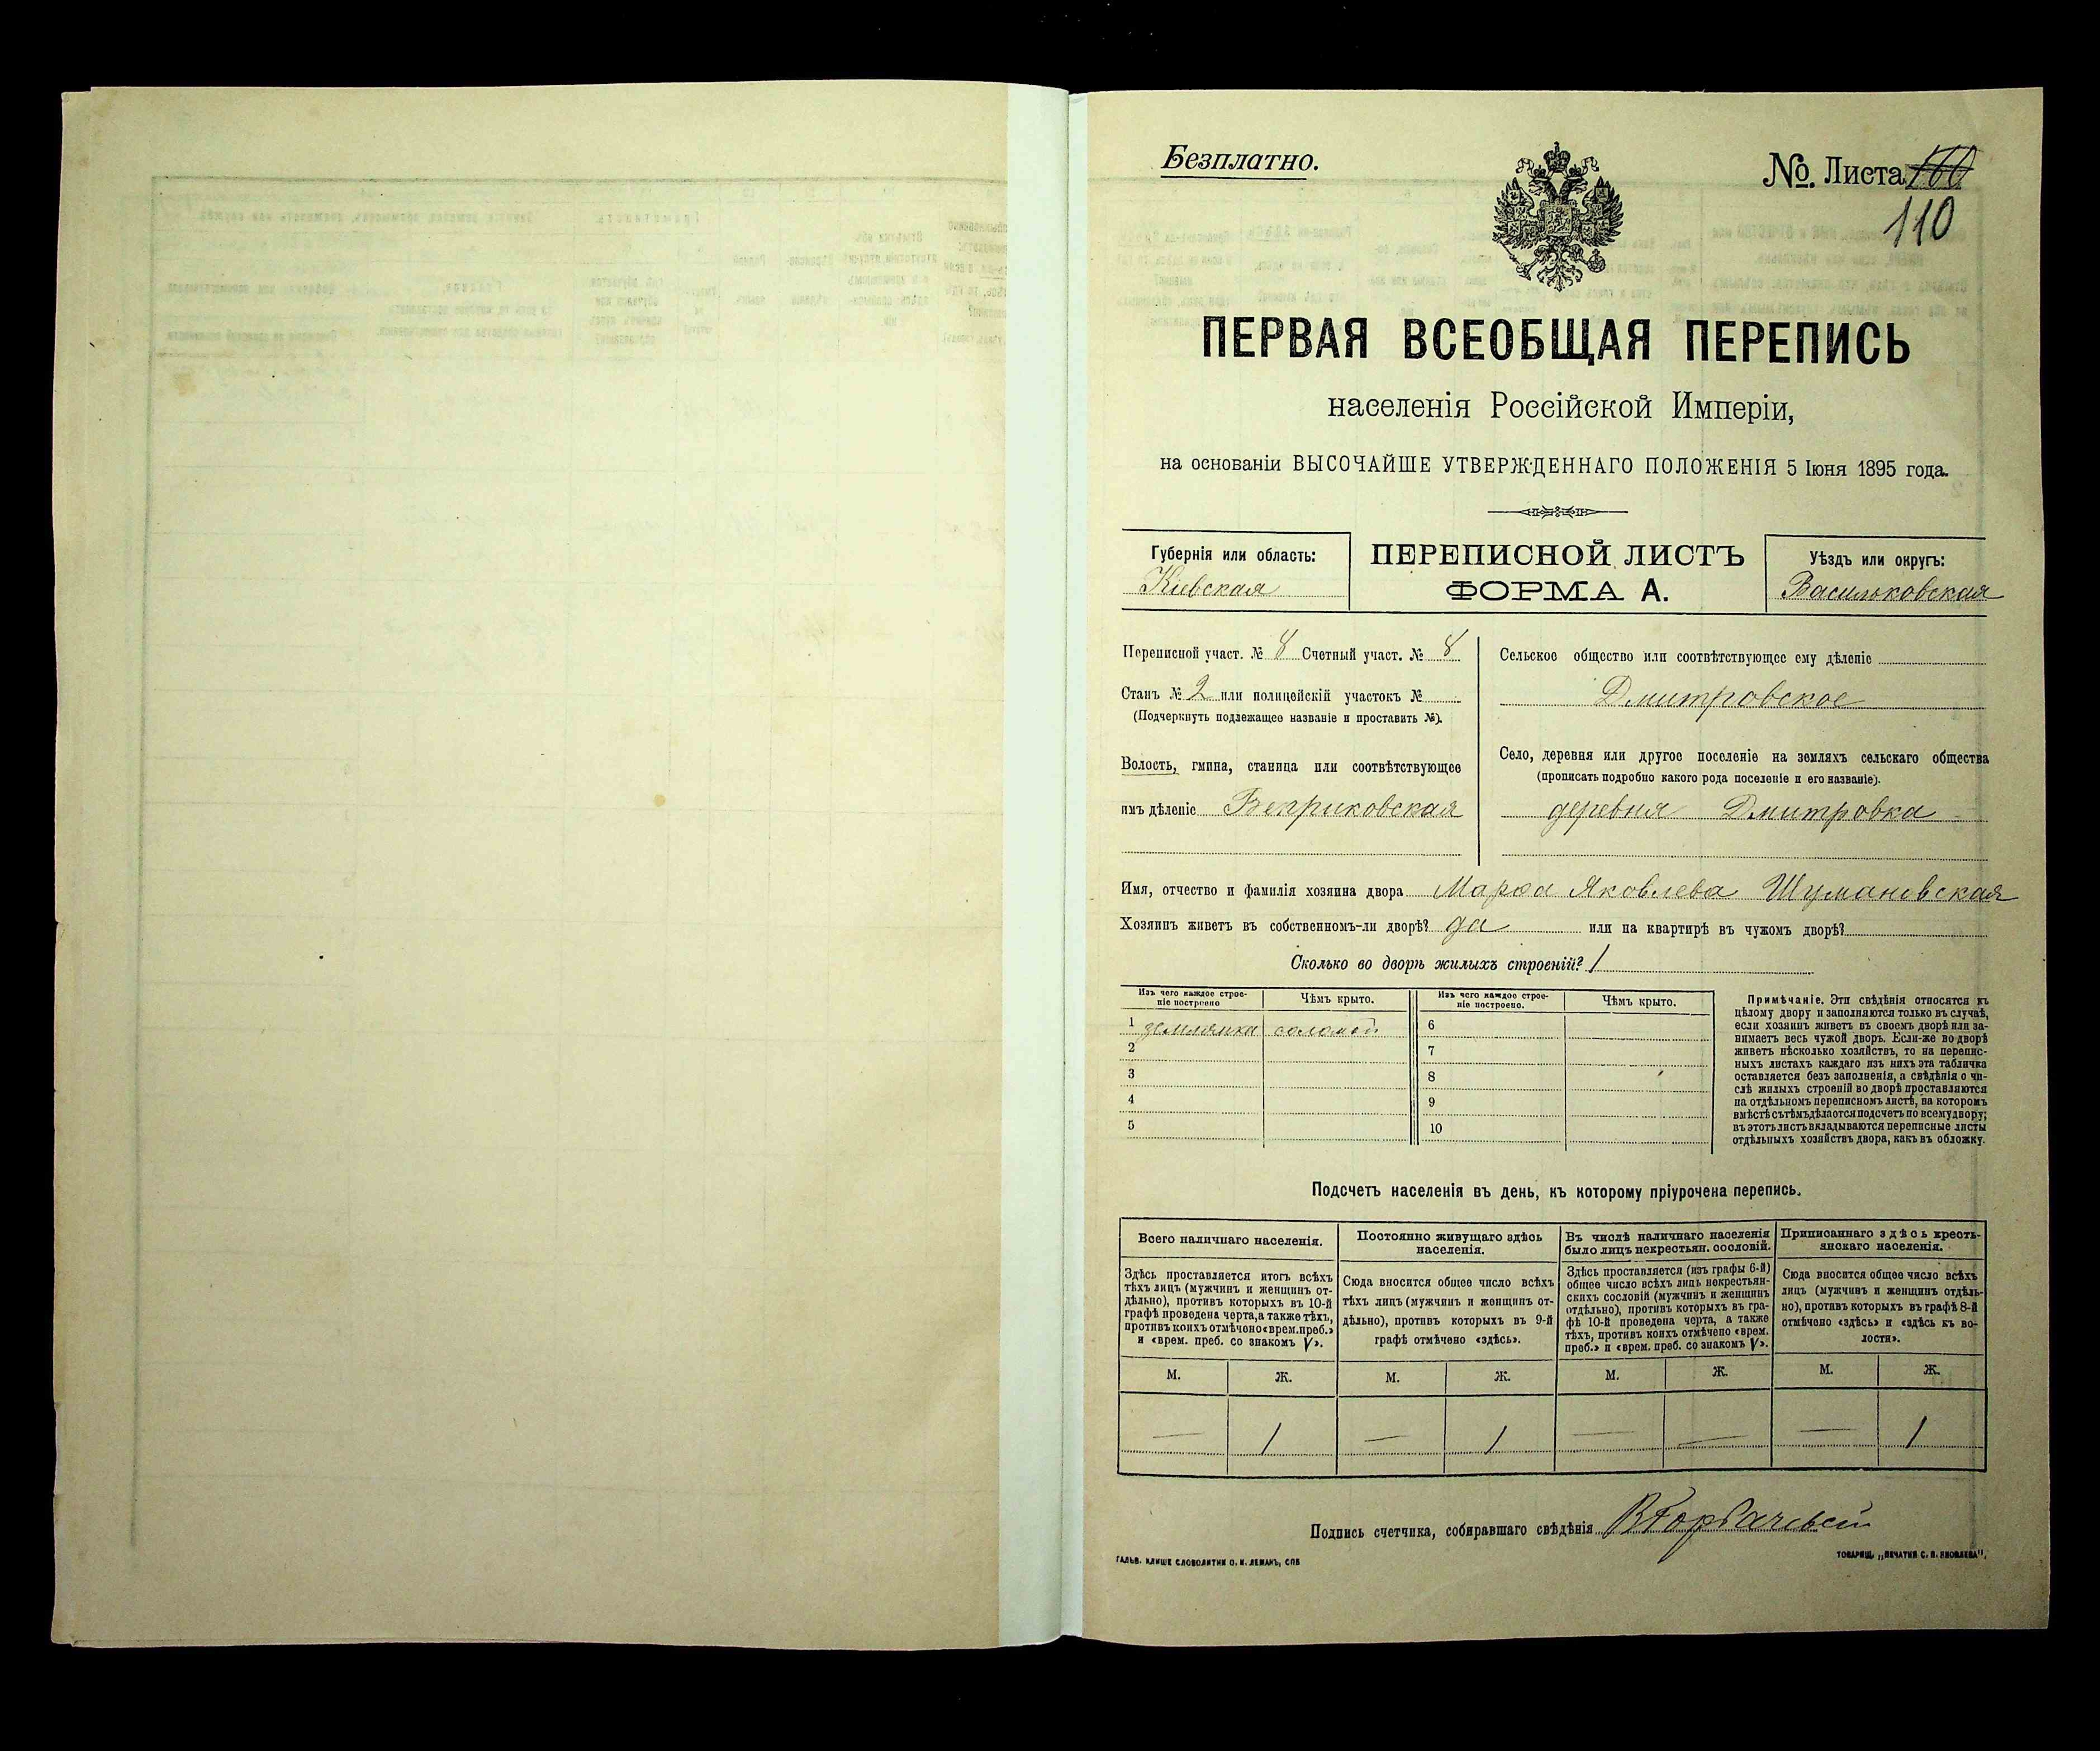 Безплатно.
№. Листа 160
110
ПЕРВАЯ ВСЕОБЩАЯ ПЕРЕПИСЬ
населенія Россійской Имперіи,
на основаніи ВЫСОЧАЙШЕ УТВЕРЖДЕННАГО ПОЛОЖЕНІЯ 5 Іюня 1895 года.
Губернія или область:
Кіевская
ПЕРЕПИСНОЙ ЛИСТЪ
ФОРМА А.
Уѣздъ или округъ:
Васильковская
Переписной участ. № 8 Счетный участ. № 8
Станъ № 2 или полицейскій участокъ №
(Подчеркнуть подлежащее названіе и проставить №).
Волость, гмина, станица или соотвѣтствующее
имъ дѣленіе Веприковская
Сельское общество или соотвѣтствующее ему дѣленіе
Дмитровское
Село, деревня или другое поселеніе на земляхъ сельскаго общества
(прописать подробно какого рода поселеніе и его названіе).
деревня Дмитровка
Имя, отчество и фамилія хозяина двора Марѳа Яковлева Шумановская
Хозяинъ живетъ въ собственномъ-ли дворѣ? да или на квартирѣ въ чужомъ дворѣ?
Сколько во дворѣ жилыхъ строеній? 1
Изъ чего каждое строе-
ніе построено
Чѣмъ крыто.
Изъ чего каждое строе-
ніе построено.
Чѣмъ крыто.
1 землянка соломой
2
3
4
5
6
7
8
9
10
Примѣчаніе. Эти свѣдѣнія относятся къ
цѣлому двору и заполняются только въ случаѣ,
если хозяинъ живетъ въ своемъ дворѣ или за-
нимаетъ весь чужой дворъ. Если-же во дворѣ
живетъ нѣсколько хозяйствъ, то на перепис-
ныхъ листахъ каждаго изъ нихъ эта табличка
оставляется безъ заполненія, а свѣдѣнія о чи-
слѣ жилыхъ строеній во дворѣ проставляются
на отдѣльномъ переписномъ листѣ, на которомъ
вмѣстѣ съ тѣмъ дѣлается подсчетъ по всему двору;
въ этотъ листъ вкладываются переписные листы
отдѣльныхъ хозяйствъ двора, какъ въ обложку.
Подсчетъ населенія въ день, къ которому пріурочена перепись.
Всего наличнаго населенія.
Постоянно живущаго здѣсь
населенія.
Въ числѣ наличнаго населенія
было лицъ некрестьян. сословій.
Приписаннаго здѣсь кресть-
янскаго населенія.
Здѣсь проставляется итогъ всѣхъ
тѣхъ лицъ (мужчинъ и женщинъ от-
дѣльно), противъ которыхъ въ 10-й
графѣ проведена черта, а также тѣхъ,
противъ коихъ отмѣчено «врем. преб.»
и «врем. преб. со знакомъ V».
Сюда вносится общее число всѣхъ
тѣхъ лицъ (мужчинъ и женщинъ от-
дѣльно), противъ которыхъ въ 9-й
графѣ отмѣчено «здѣсь».
Здѣсь проставляется (изъ графы 6-й)
общее число всѣхъ лицъ некрестьян-
скихъ сословій (мужчинъ и женщинъ
отдѣльно), противъ которыхъ въ гра-
фѣ 10-й проведена черта, а также
тѣхъ, противъ коихъ отмѣчено «врем.
преб.» и «врем. преб. со знакомъ V».
Сюда вносится общее число всѣхъ
лицъ (мужчинъ и женщинъ отдѣль-
но), противъ которыхъ въ графѣ 8-й
отмѣчено «здѣсь» и «здѣсь къ во-
лости».
М. Ж. М. Ж. М. Ж. М. Ж.
— 1 — 1 — — — 1
Подпись счетчика, собиравшаго свѣдѣнія ВГорбачевскій
ГАЛЬВ. КЛИШЕ СЛОВОЛИТНИ О. И. ЛЕМАНЪ, СПБ
ТОВАРИЩ. „ПЕЧАТНЯ С. П. ЯКОВЛЕВА".